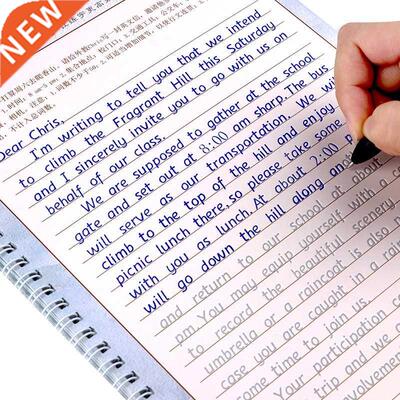 NEW
打算周六去爬香山，请你给外教Chris写一封英文信，邀请他
时间，8 am-5 pm, 2.集合地点，校门口; 3.交通工具，公交车
相机。注意：1.词数不少于60, 2.可适当增加细节，以使行文连贯
不计入总词数。
Dear Chris,
I'm writing to tell you that we intend
to climb the Fragrant Hill this Saturday
and I sincerely invite you to go with us on
behalf of our class.
We are supposed to gather at the school
gate and set out at 8:00 am sharp. The bus
will serve as our transportation. We wi
climb to the top of the hill and enjoy
picnic lunch there, so please take some
with you as lunch. At about 2:00 p
will go down the hill along an
and return to our school at about
pm. You may equip yourself with a c
to record the beautiful scenery
umbrella or a raincoat is also n
case you are caught in a rain
some time to join us.
Your participation
trip and we a
involvemen